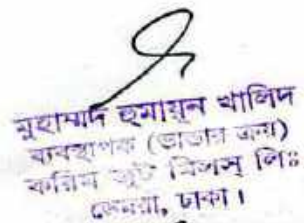 মুহাম্মদ হুমায়ুন খালিদ
ব্যবস্থাপক (ভান্ডার ক্রয়)
করিম জুট মিলস্ লিঃ
ডেমরা, ঢাকা।